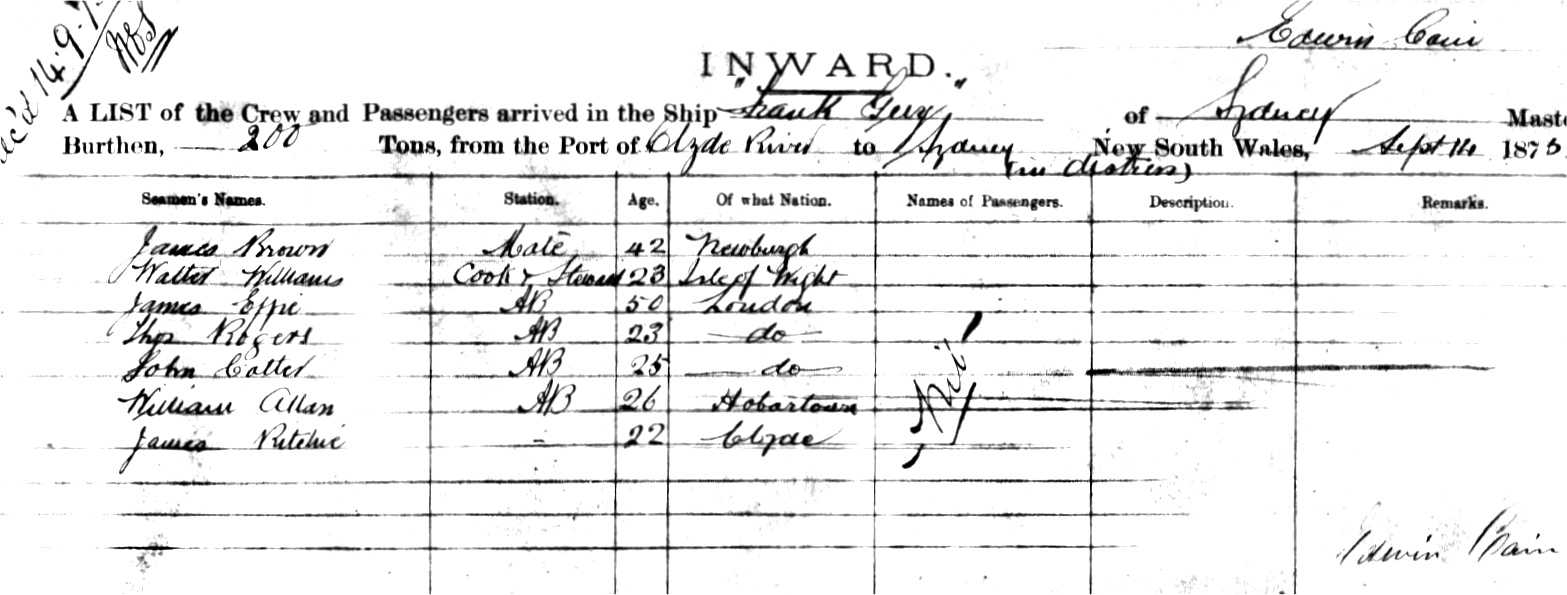 Rec'd 14.9.7
Edwin Cain
INWARD.
A LIST of the Crew and Passengers arrived in the Ship "Frank Guy" of Sydney Maste
Burthen, 200 Tons, from the Port of Clyde River to Sydney New South Wales, Sept 14 1875
(in distress)
Seamen's Names. Station. Age. Of what Nation. Names of Passengers. Description. Remarks.
James Brown Mate 42 Newburgh
Walter Williams Cook & Steward 23 Isle of Wight
James Effie AB 50 London
Thos Rogers AB 23 do
John Cotter AB 25 do Nil
William Allan AB 26 Hobartown
James Ritchie - 22 Clyde
Edwin Cain